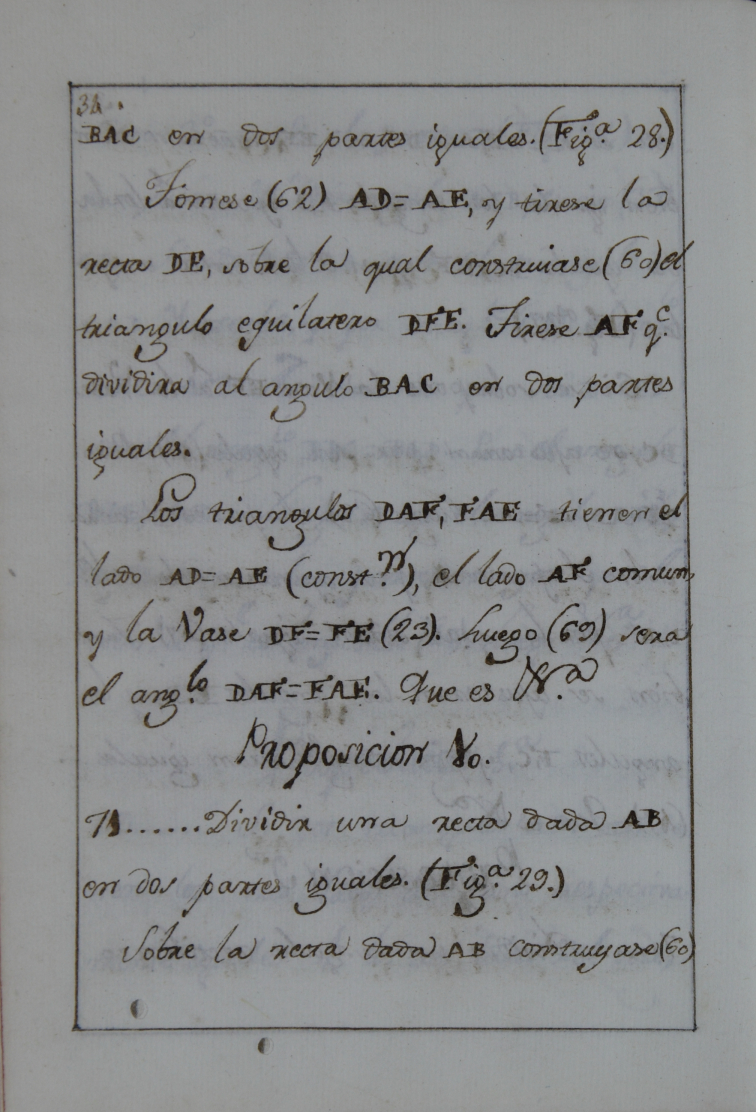 34.
BAC en dos partes iguales. (Figª. 28.)
Tomese (62) AD=AE, y tirese la
recta DE, sobre la qual construiase (60) el
triangulo equilatero DFE. Tirese AF q.ᵉ
dividira al angulo BAC en dos partes
iguales.
Los triangulos DAF, FAE tienen el
lado AD=AE (const.ⁿ), el lado AF comun,
y la Vase DF=FE (23). Luego (69) sera
el ang.ˡᵒ DAF=FAE. Que es
Proposicion
71......Dividir una recta dada AB
en dos partes iguales. (Fig.ª 29.)
Sobre la recta dada AB construyase (60)